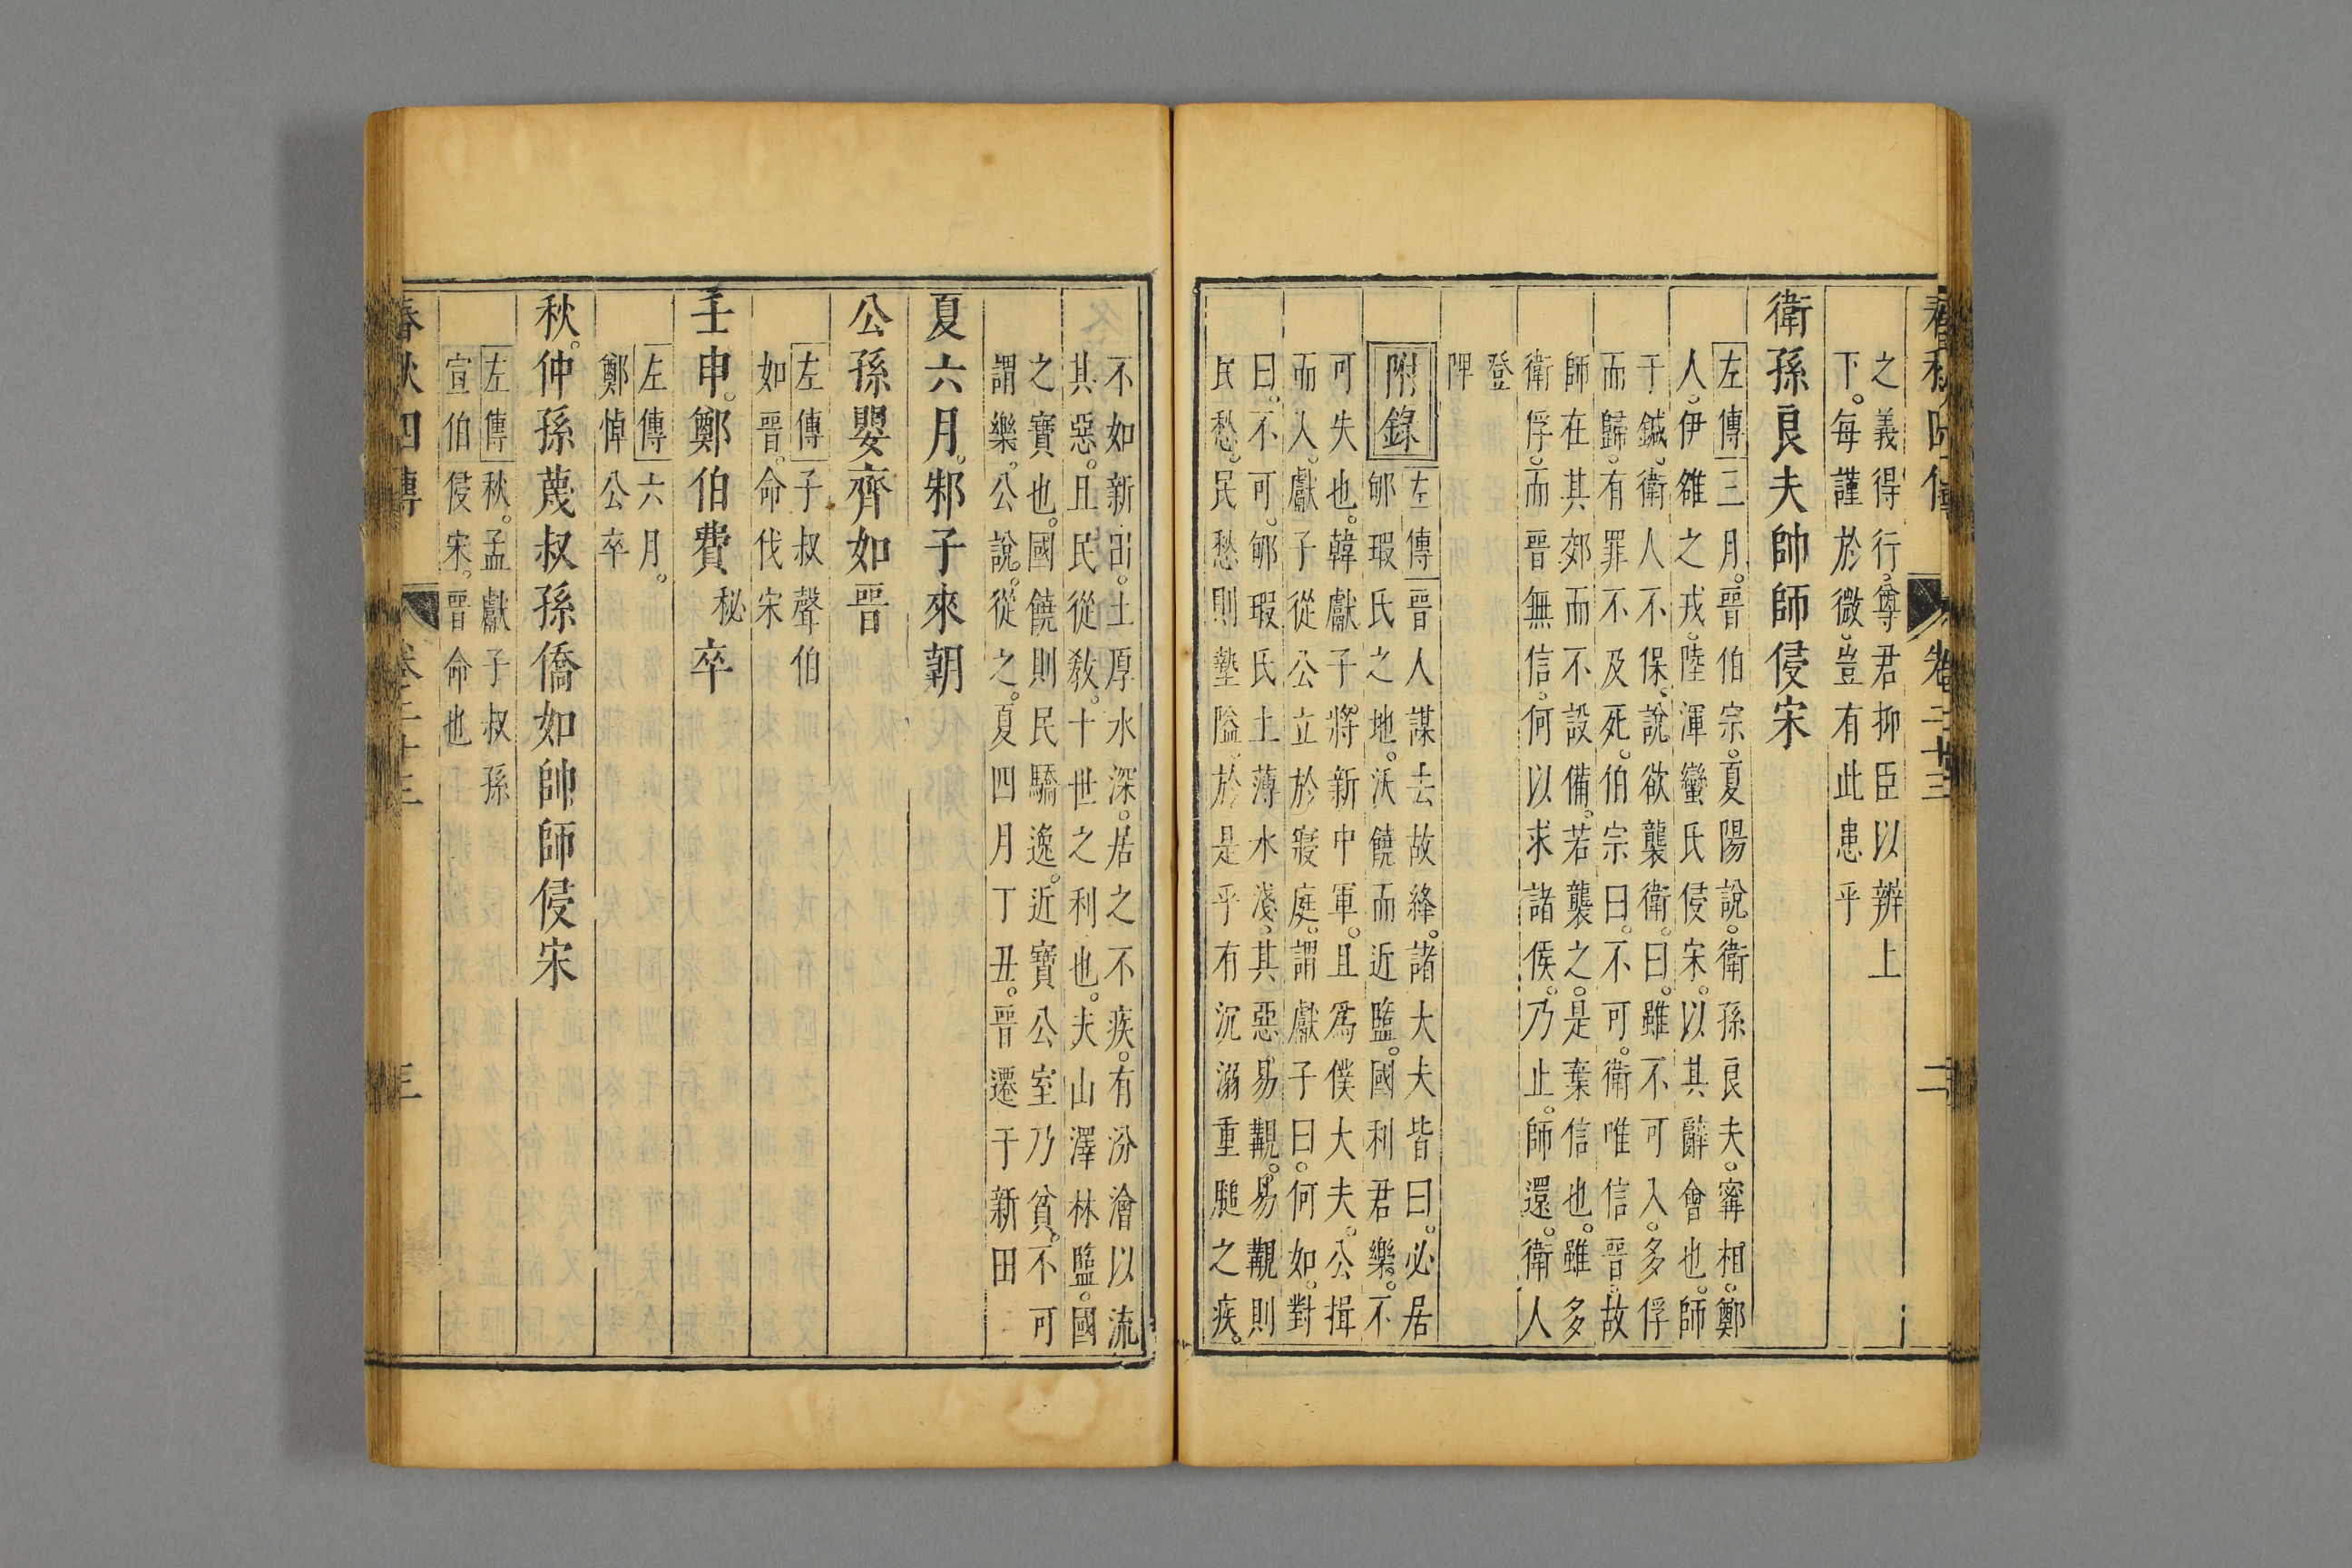 春秋四傳 卷二十三 二
之義得行。尊君抑臣以辨上
下。每謹於微。豈有此患乎
衛孫良夫帥師侵宋
左傳三月。晉伯宗。夏陽說。衛孫良夫。甯相。鄭
人。伊雒之戎。陸渾蠻氏侵宋。以其辭會也。師
于鍼。衛人不保。說欲襲衛。曰。雖不可入。多俘
而歸。有罪不及死。伯宗曰。不可。衛唯信晉。故
師在其郊。而不設備。若襲之。是棄信也。雖多
衛俘。而晉無信。何以求諸侯。乃止。師還。衛人
登
陴
附錄左傳晉人謀去故絳。諸大夫皆曰。必居
郇瑕氏之地。沃饒而近盬。國利君樂。不
可失也。韓獻子。將新中軍。且為僕大夫。公揖
而入。獻子從公立於寢庭。謂獻子曰。何如。對
曰。不可。郇瑕氏土薄水淺。其惡易覯。易覯則
民愁。民愁則墊隘。於是乎有沉溺重膇之疾。
不如新田。土厚水深。居之不疾。有汾澮以流
其惡。且民從教。十世之利也。夫山澤林盬。國
之寶也。國饒則民驕逸。近寶公室乃貧。不可
謂樂。公說。從之。夏四月丁丑。晉遷于新田
夏六月。邾子來朝
公孫嬰齊如晉
左傳子叔聲伯
如晉。命伐宋
壬申。鄭伯費秘卒
左傳六月。
鄭悼公卒
秋。仲孫蔑叔孫僑如帥師侵宋
左傳秋。孟獻子叔孫
宣伯侵宋。晉命也
春秋四傳 卷二十三 三